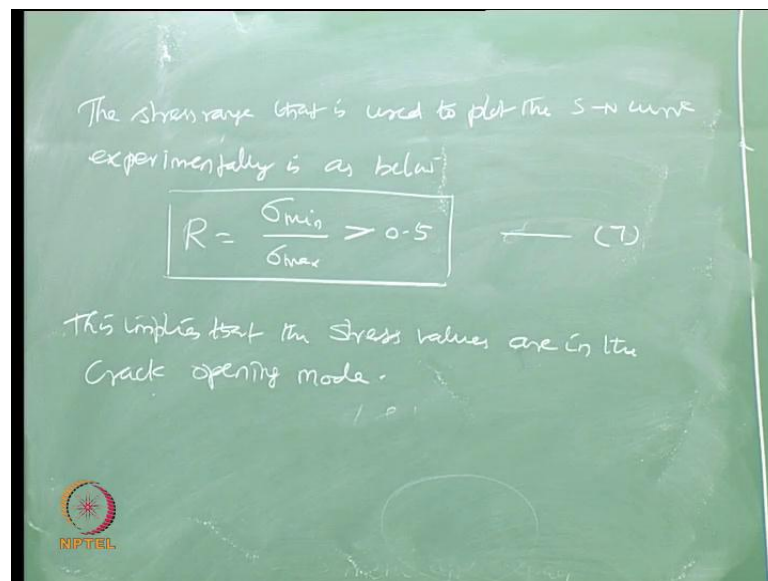 The stress range that is used to plot the S-N curve
experimentally is as below
R = σmin / σmax > 0.5 —— (7)
This implies that the stress values are in the
Crack opening mode.
NPTEL